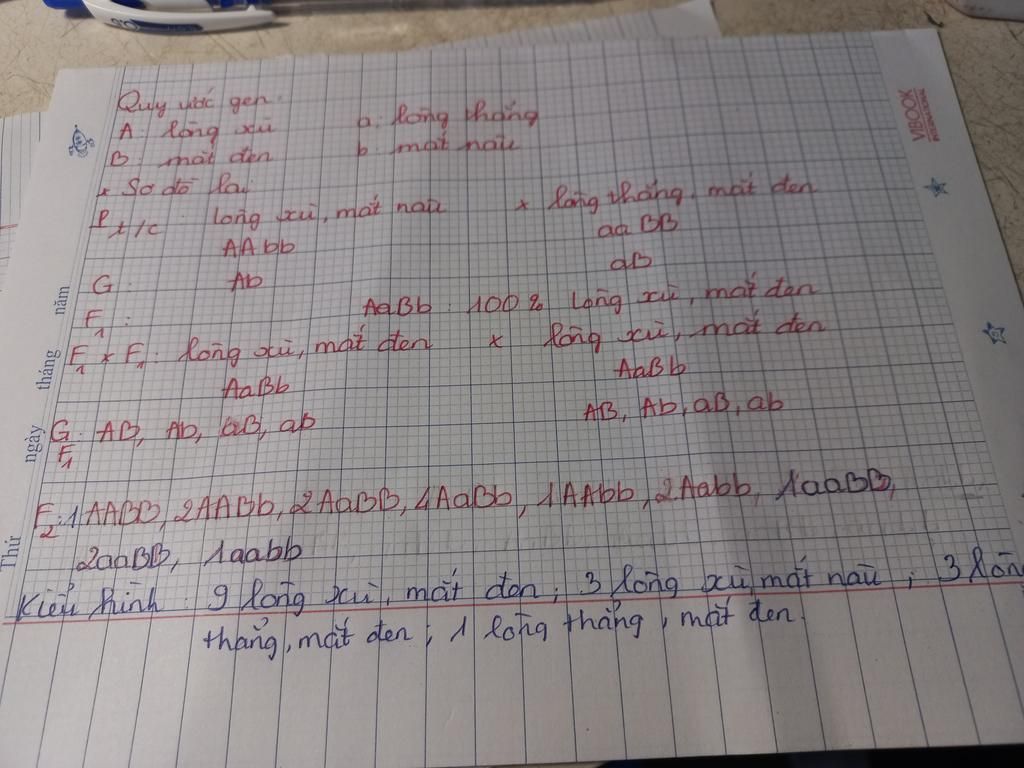 Quy ước gen:
A: lông xù a: lông thẳng
B: mắt đen b: mắt nâu
* Sơ đồ lai
P t/c: lông xù, mắt nâu x lông thẳng, mắt đen
AAbb aaBB
G: Ab aB
F1: AaBb: 100% lông xù, mắt đen
F1 x F1: lông xù, mắt đen x lông xù, mắt đen
AaBb AaBb
G F1: AB, Ab, aB, ab AB, Ab, aB, ab
F2: 1AABB, 2AABb, 2AaBB, 4AaBb, 1AAbb, 2Aabb, 1aaBB,
2aaBB, 1aabb
Kiểu hình: 9 lông xù, mắt đen; 3 lông xù, mắt nâu; 3 lông
thẳng, mắt đen; 1 lông thẳng, mắt đen.
Thứ ngày tháng năm
VIBOOK
INTERNATIONAL